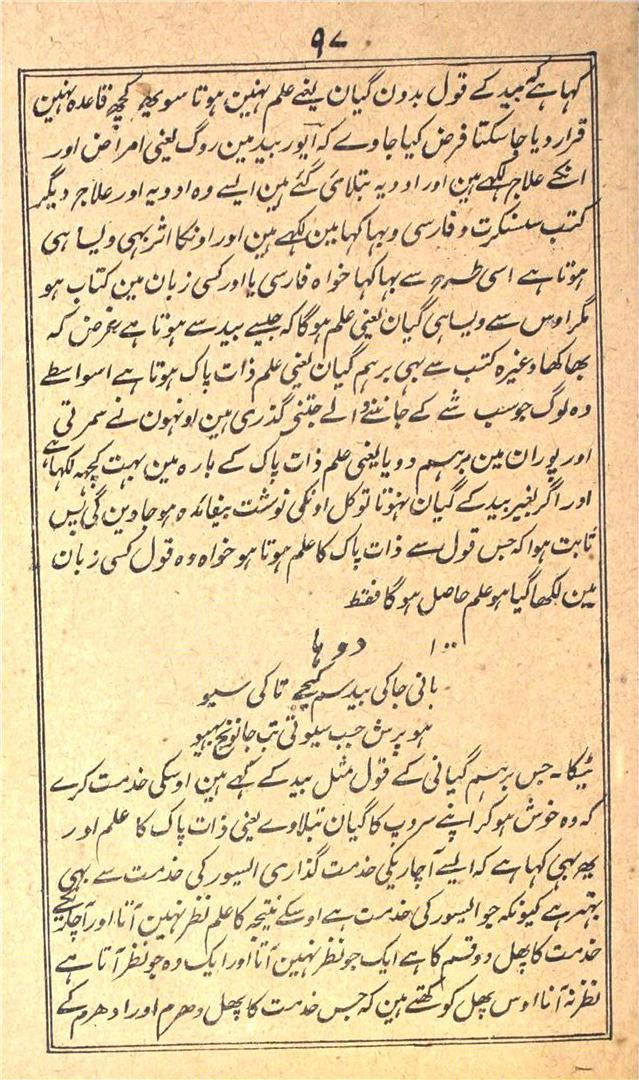 ۹۷
کہا ہے کہ بید کے قول بدون گیان یعنے علم نہین ہوتا سو یھہ کچھہ قاعدہ نہین
قرار دیا جا سکتا فرض کیا جاوے کہ آیور بید مین روگ یعنی امراض اور
انکے علاج لکھے ہین اور ادویہ بتلائی گئے ہین ایسے وہ ادویہ اور علاج دیگر
کتب سنسکرت و فارسی و بہا کہا مین لکھے ہین اور اونکا اثر بہی ویسا ہی
ہوتا ہے اسی طرح سے بہاکہا خواہ فارسی یا اور کسی زبان مین کتاب ہو
مگر اوس سے ویسا ہی گیان یعنی علم ہوگا کہ جیسے بید سے ہوتا ہے غرض کہ
بھاکھا وغیرہ کتب سے بہی برہم گیان یعنی علم ذات پاک ہوتا ہے اسواسطے
وہ لوگ جو سب شے کے جاننے والے جتنی گذری ہین اونہون نے سمرتی
اور پوران مین برہم ودیا یعنی علم ذات پاک کے بارہ مین بہت کچہہ لکہا ہے
اور اگر بغیر بید کے گیان نہوتا تو کل اونکی نوشت بیفائدہ ہو جادین گی پس
ثابت ہوا کہ جس قول سے ذات پاک کا علم ہوتا ہو خواہ وہ قول کسی زبان
مین لکھا گیا ہو علم حاصل ہوگا فقط
۱۰۰ دوہا
بانی جاکی بید سم کیجے تاکی سیو
ہو پرسن جب سیوتی تب جانو نج بھیو
ٹیکا - جس برہم گیانی کے قول مثل بید کے کہے ہین اوسکی خدمت کرے
کہ وہ خوش ہو کر اپنے سروپ کا گیان بتلاوے یعنی ذات پاک کا علم اور
یھہ بہی کہا ہے کہ ایسے آچاریکی خدمت گذاری الیسور کی خدمت سے بہی
بہتر ہے کیونکہ جو الیسور کی خدمت ہے اوسکے نتیجہ کا علم نظر نہین آتا اور آچاریکے
خدمت کا پھل دو قسم کا ہے ایک جو نظر نہین آتا اور ایک وہ جو نظر آتا ہے
نظر نہ آنا اوس پھل کو کہتے ہین کہ جس خدمت کا پھل دھرم اور ادھرم کے